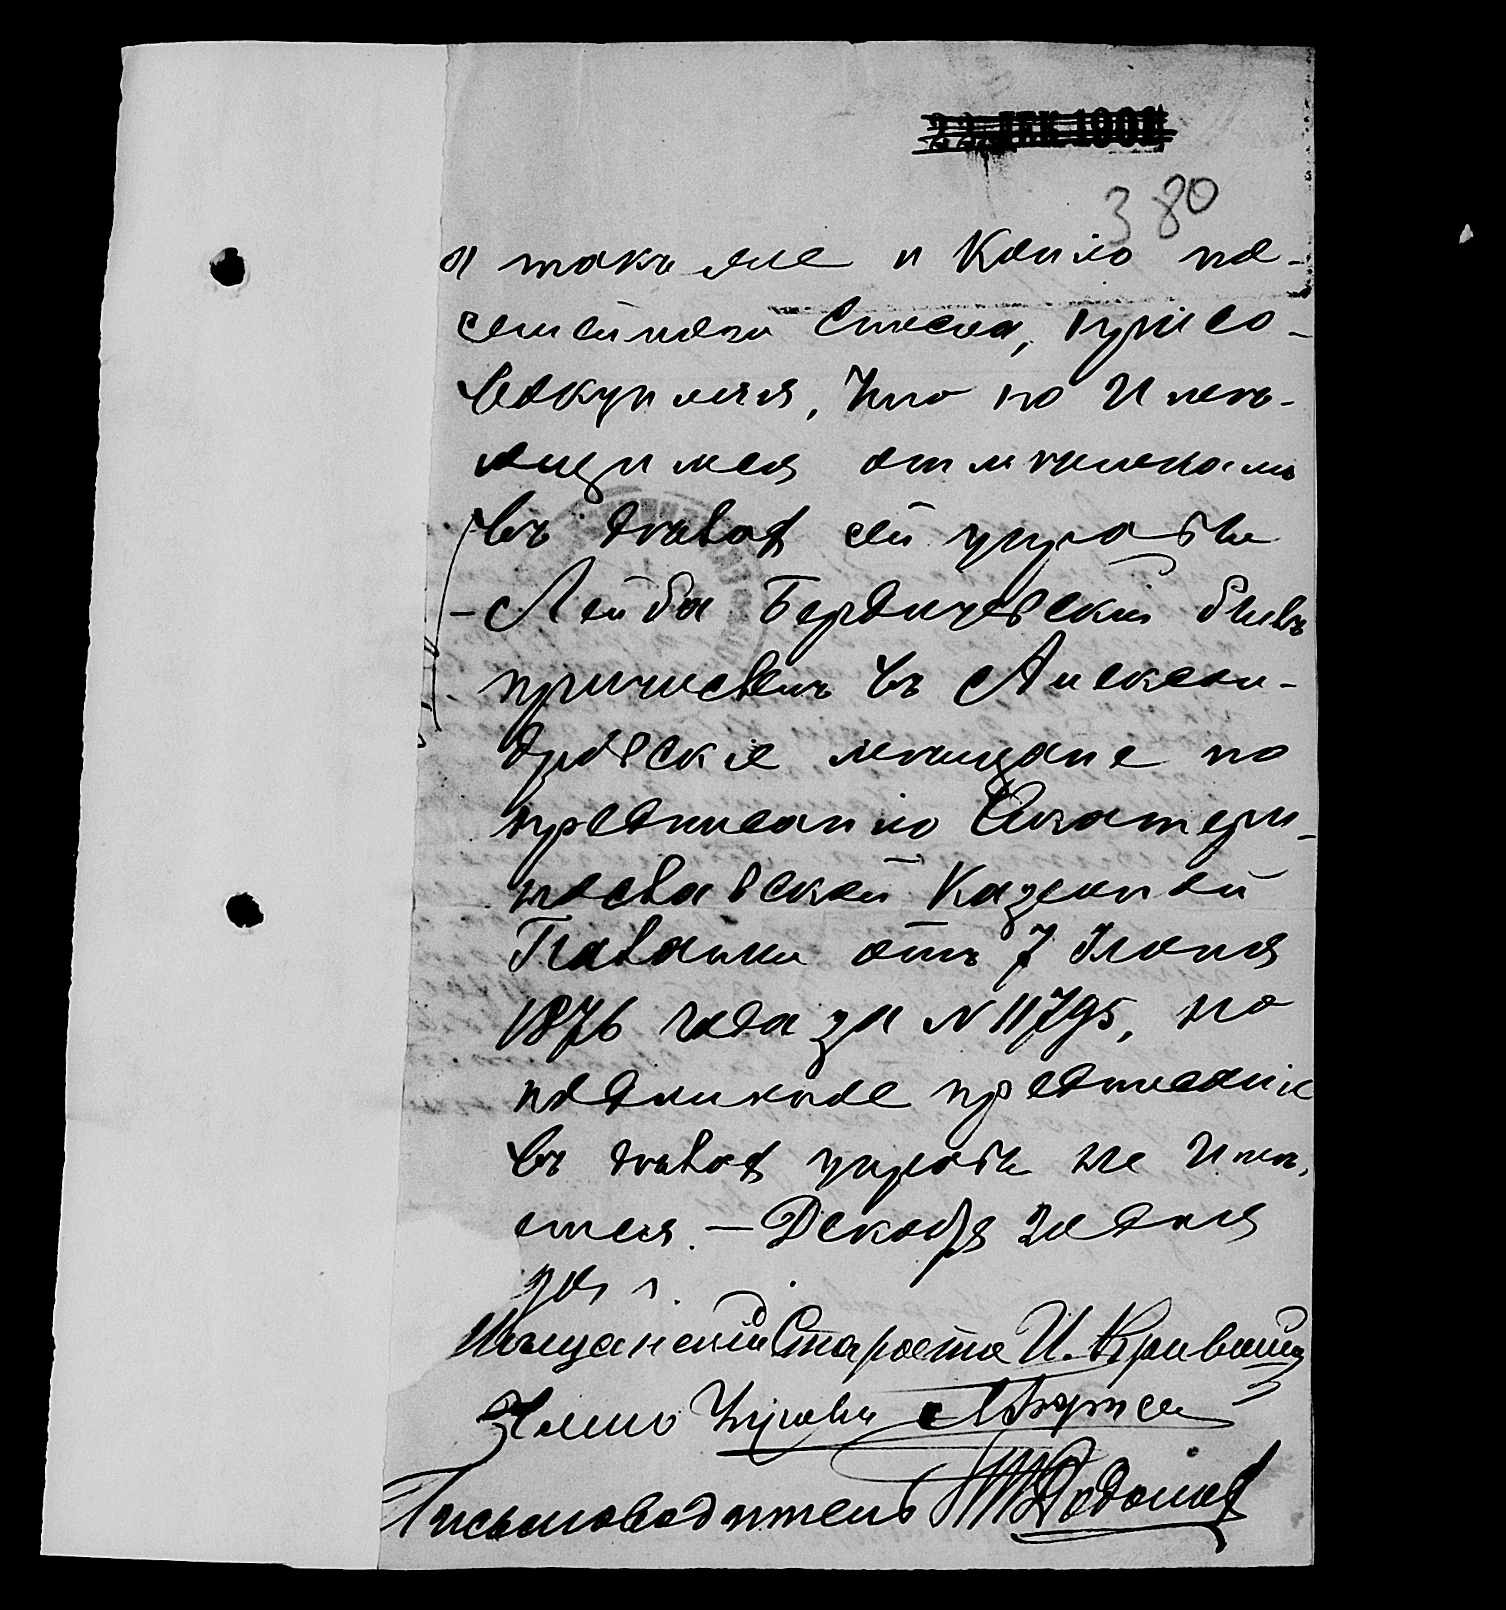 22 ДЕК 1901
380
а также и Копію по-
семейнаго Списка, присо-
вокупляя, что по Имѣ-
ющимся отмѣткамъ
въ дѣлахъ сей управы
— Лейба Бердичевскій
причисленъ въ Алексан-
дровскіе мѣщане по
предписанію Екатери-
нославской Казенной
Палаты отъ 7 Іюня
1876 года за № 11795, но
подлинное предписаніе
въ дѣлахъ управы не Имѣ-
ется. — Декабря 20 дня
901 г.
Мѣщанскій Староста И.
Членъ Управы
Письмоводитель